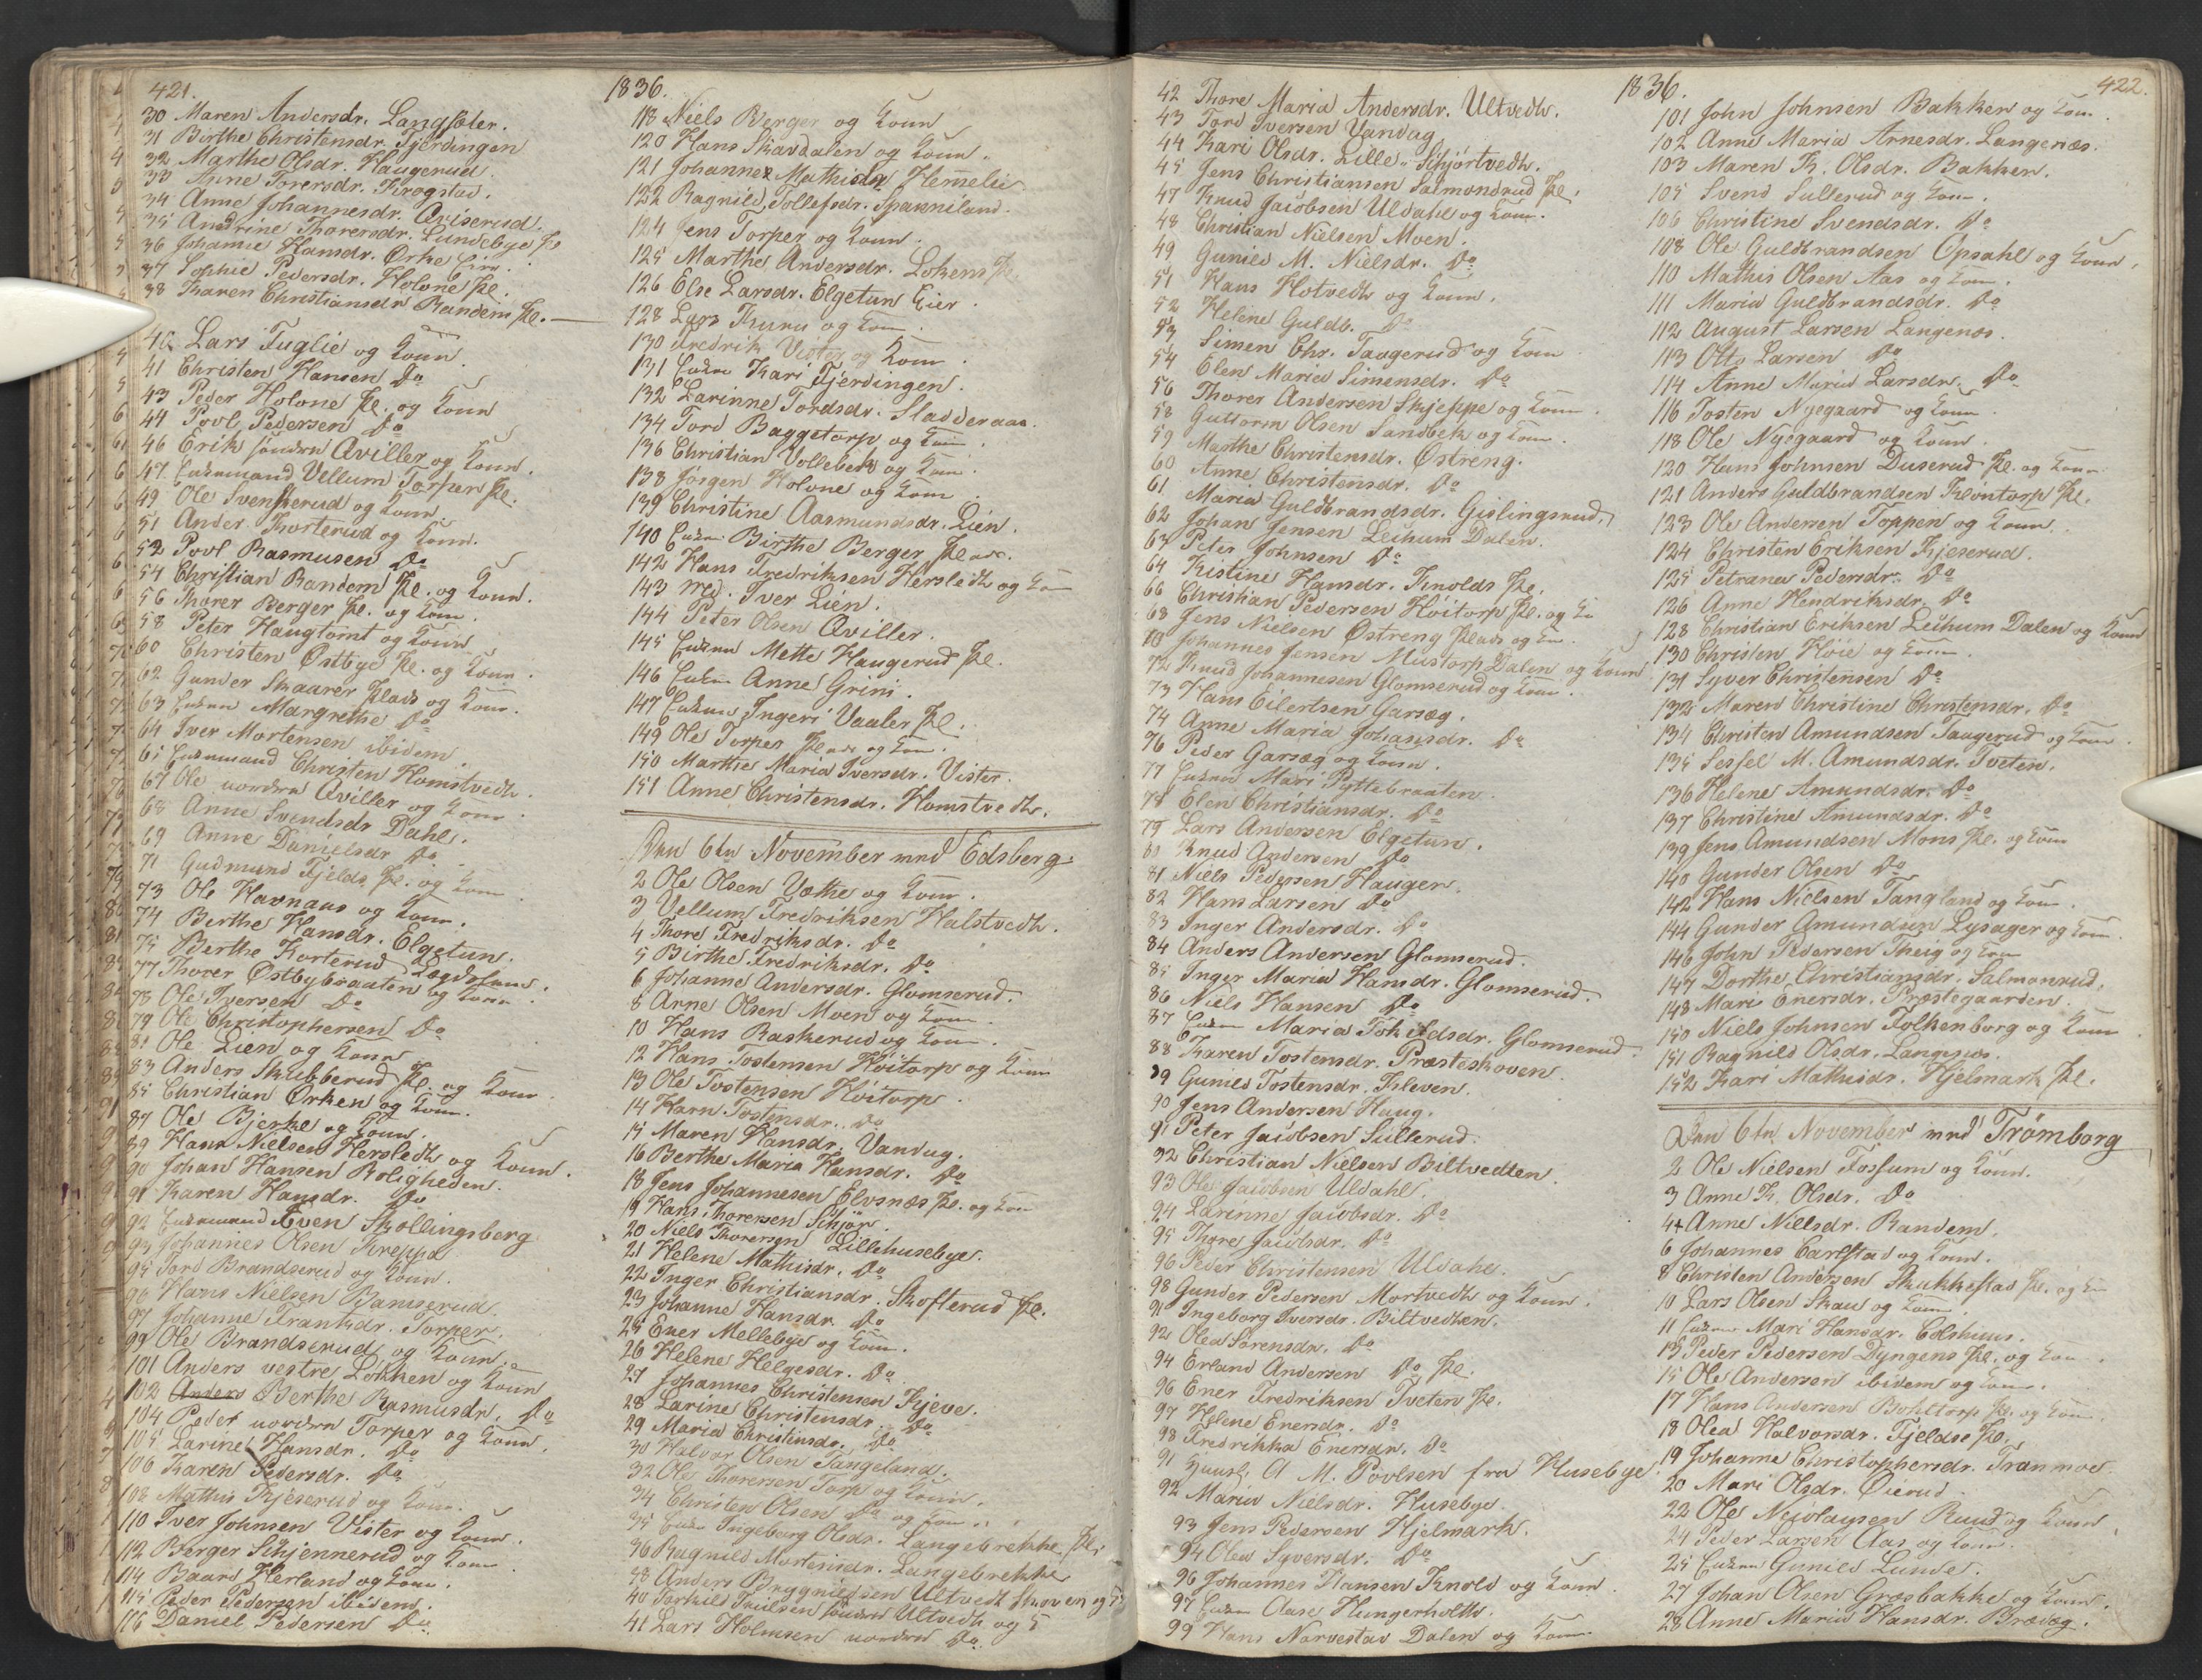 421.
30 Maren Andersdr. Langsæter.
31 Birthe Christensdr. Fjerdingen
32 Marthe Olsdr. Haugerud.
33 Anne Torersdr. Krogstad.
34 Anne Johannesdr. Aviserud.
35 Andrine Thorersdr. Lundebye Pl.
36 Johanne Hansdr. Ørke
37 Sophie Pedersdr. Holone Pl.
38 Karen Christiansdr Randem Pl.
40 Lars Fuglie og Kone.
41 Christen Hansen Do
43 Peder Holone Pl. og Kone
44 Povl Pedersen Do
46 Erik søndre Aviller og Kone.
47 Enkemand Vellum Torper Pl.
49 Ole Svenskerud og Kone
51 Ander Korterud og Kone.
52 Povl Rasmusen Do
54 Christian Randem Pl. og Kone.
56 Thorer Berger Pl. og Kone.
58 Peter Haugtomt og Kone
60 Christen Østbye Pl. og Kone.
62 Gunder Skaarer Plads og Kone.
63 Enken Margrethe Do
64 Iver Mortensen ibidem.
65 Enkemand Christen Homstvedt.
67 Ole nordre Aviller og Kone.
68 Anne Svendsdr Dahl.
69 Anne Danielsdr Do
71 Gudmund Fjelds Pl. og Kone
73 Ole Havnaas og Kone.
74 Berthe Hansdr. Elgetun.
75 Berthe Korterud Lægdslem.
77 Thorer Østbybraaten og Kone.
78 Ole Iversen Do
79 Ole Christophersen Do
81 Ole Lien og Kone
83 Anders Skubberud Pl. og Kone.
85 Christian Ørken og Kone.
87 Ole Bjerke og Kone.
89 Hans Nielsen Hersledt og Kone.
90 Johan Hansen Roligheden.
91 Karen Hansdr. Do
92 Enkemand Even Skollingsberg
93 Johannes Olsen Kreppa
95 Tord Brandserud og Kone.
96 Hans Nielsen Bamserud
97 Johanne Frantsdr. Torper.
99 Ole Brandserud og Kone.
101 Anders vestre Løkken og Kone
102 Anders Berthe Rasmusdr. Do
104 Peder nordre Torper og Kone.
105 Larine Hansdr. Do
106 Karen Pedersdr. Do
108 Mathis Kjeserud og Kone.
110 Iver Johnsen Vister og Kone.
112 Berger Skjennerud og Kone
114 Baard Herland og Kone.
115 Peder Pedersen ibidem.
116 Daniel Pedersen Do
1836.
118 Niels Berger og Kone
120 Hans Skavdalen og Kone.
121 Johannes Mathisen Hemelie
122 Ragnild Tollefsdr. Spanniland.
124 Jens Torper og Kone.
125 Marthe Andersdr. Løkens Pl.
126 Else Larsdr. Elgetun Eier.
128 Lars Kuru og Kone.
130 Fredrik Vister og Kone.
131 Enken Kari Fjerdingen.
132 Larinne Tordsdr. Sladderaas.
134 Tord Baggetorp og Kone.
136 Christian Vollebek og Kone.
138 Jørgen Holone og Kone
139 Christine Aasmundsdr. Lien.
140 Enken Birthe Berger Plads.
142 Hans Fredriksen Hersledt og Kone
143 Iver Lien.
144 Peter Olsen Aviller.
145 Enken Mette Haugerud Pl.
146 Enken Anne Grini.
147 Enken Ingeri Vaaler Pl.
149 Ole Torper Plads og Kone.
150 Marthe Maria Iversdr. Vister.
151 Anne Christensdr. Homstvedt.
Den 6te November ved Edsberg.
2 Ole Olsen Vøthe og Kone.
3 Vellum Fredriksen Halstvedt.
4 Thore Fredriksdr. Do
5 Birthe Fredriksdr. Do
6 Johanne Andersdr. Glomserud.
8 Arne Olsen Moen og Kone.
10 Hans Raskerud og Kone.
12 Hans Tostensen Høitorp og Kone
13 Ole Tostensen Høitorp.
14 Karn Tostensdr. Do
15 Maren Hansdr. Vandug.
16 Berthe Maria Hansdr. Do
18 Jens Johannesen Elvsnæs Pl. og Kone
19 Hans Thorersen Skjør.
20 Niels Thorersen Lillehusebye.
21 Helene Mathisdr. Do
22 Inger Christiansdr. Skofterud Pl.
23 Johanne Hansdr. Do
25 Ener Mellebye og Kone.
26 Helene Helgesdr. Do
27 Johannes Christensen Kjeve.
28 Larine Christensdr. Do
29 Maria Christinsdr. Do
30 Halvor Olsen Tangeland.
32 Ole Thorersen Torp og Kone.
34 Christen Olsen Do og Kone.
35 Enken Ingeborg Olsdr. Langebrekke Pl.
36 Ragnild Mortensdr. Langebrekke
38 Anders Brygnildsen Ultvedt Skoven og K
40 Torkild Truilsen søndre Ultvedt og K
41 Lars Holmsen nordre Do.
42 Thore Maria Andersdr. Ultvedt.
43 Tord Iversen Vandug
44 Kari Olsdr. Lille-Skjørtvedt.
45 Jens Christiansen Salmondrud Pl.
47 Knud Jacobsen Uldahl og Kone.
48 Christian Nielsen Moen.
49 Gunild M. Nielsdr. Do
51 Hans Hotvedt og Kone.
52 Helene Guldb. Do
53 Simen Chr. Taugerud og Kone
54 Elen Maria Simensdr. Do
56 Thorer Andersen Skjeppe og Kone.
58 Guttorm Olsen Sandbek og Kone.
59 Marthe Christensdr. Østreng.
60 Anne Christensdr. Do
61 Maria Guldbrandsdr. Gislingsrud.
62 Johan Jensen Leikum Dalen.
63 Peter Johnsen Do
64 Kistine Hansdr. Knolds Pl.
66 Christian Pedersen Høitorp Pl. og Ko
68 Jens Nielsen Østreng Plads og Kone.
70 Johannes Jensen Mustorp Dalen og Kone
72 Knud Johannesen Glomserud og Kone.
73 Hans Eilertsen Garsæg.
74 Anne Maria Johansdr. Do
76 Peder Garsæg og Kone.
77 Enken Mari Pyttebraaten.
78 Elen Christiansdr. Do
79 Lars Andersen Elgetun.
80 Knud Andersen Do
81 Niels Pedersen Haugen.
82 Hans Larsen Do
83 Inger Andersdr. Do
84 Anders Andersen Glomserud.
85 Inger Maria Hansdr. Glomserud.
86 Niels Hansen Do
87 Enken Maria Torkildsdr. Glomserud.
88 Karen Tostensdr. Præsteskoven.
89 Gunild Tostensdr. Kleven.
90 Jens Andersen Haug.
91 Peter Jacobsen Sullerud.
92 Christian Nielsen Biltvedten.
93 Ole Jacobsen Uldahl.
94 Larinne Jacobsdr. Do
95 Thore Jacobsdr. Do
96 Peder Christensen Uldahl.
98 Gunder Pedersen Mortvedt og Kone.
91 Ingeborg Iversdr. Biltvedten.
92 Olea Sørensdr. Do
94 Erland Andersen Do Pl.
96 Ener Fredriksen Tveten Pl.
97 Helene Enersdr. Do
98 Fredrikka Enersdr. Do
91 A M. Povlsen fra Husebye!
92 Maria Nielsdr. Husebye.
93 Jens Pedersen Hjelmark.
94 Olea Syversdr. Do
96 Johannes Hansen Knold og Kone.
97 Enken Aase Hungerholtt.
99 Hans Narvestad Dalen og Kone
1836.
422.
101 John Johnsen Bakken og Kone.
102 Anne Maria Arnesdr. Langenæs.
103 Maren K. Olsdr. Bakken.
105 Svend Sullerud og Kone.
106 Christine Svendsdr. Do
108 Ole Guldbrandsen Opsahl og Kone.
110 Mathis Olsen Aas og Kone.
111 Maria Guldbrandsdr. Do
112 August Larsen Langenæs.
113 Otto Larsen Do
114 Anne Maria Larsdr. Do
116 Tosten Nyegaard og Kone.
118 Ole Nyegaard og Kone.
120 Hans Johnsen Duserud Pl. og Kone.
121 Anders Guldbrandsen Kløntorp Pl.
123 Ole Andersen Toppen og Kone.
124 Christen Eriksen Kjeserud.
125 Petranea Pedersdr. Do
126 Anne Hendriksdr. Do
128 Christian Eriksen Leikum Dalen og Kone
130 Christen Høie og Kone.
131 Syver Christensen Do
132 Maren Christine Christensdr. Do
134 Christen Amundsen Taugerud og Kone.
135 Sessel M. Amundsdr. Tveten.
136 Helene Amundsdr. Do
137 Christine Amundsdr. Do
139 Jens Amundsen Mons Pl. og Kone
140 Gunder Olsen Do
142 Hans Nielsen Tangland og Kone.
144 Gunder Amundsen Lysager og Kone.
146 John Pedersen Theig og Kone
147 Dorthe Christiansdr. Salmonrud.
148 Mari Enersdr. Præstegaarden.
150 Niels Johnsen Folkenborg og Kone
151 Ragnild Olsdr. Langenæs.
152 Kari Mathisdr. Hjelmark Pl.
Den 6te November ved Trømborg
2 Ole Nielsen Fossum og Kone.
3 Anne K. Olsdr. Do
4 Anne Nielsdr. Randem.
6 Johannes Carlstad og Kone.
8 Christen Andersen Skukkestad Pl. og Ko
10 Lars Olsen Skau og Kone.
11 Enken Mari Hansdr. Colshuus.
13 Peder Pedersen Dyngens Pl. og Kone.
15 Ole Andersen ibidem og Kone.
17 Hans Andersen Bohltorp Pl. og Kone
18 Olea Halvorsdr. Fjeldse Pl.
19 Johanna Christophersdr. Tranmoe.
20 Mari Olsdr. Øierud.
22 Ole Nicolaysen Ruud og Kone.
24 Peder Larsen Aas og Kone.
25 Enken Gunild Lunde.
27 Johan Olsen Græsbakke og Kone.
28 Anne Maria Hansdr. Brædeg.